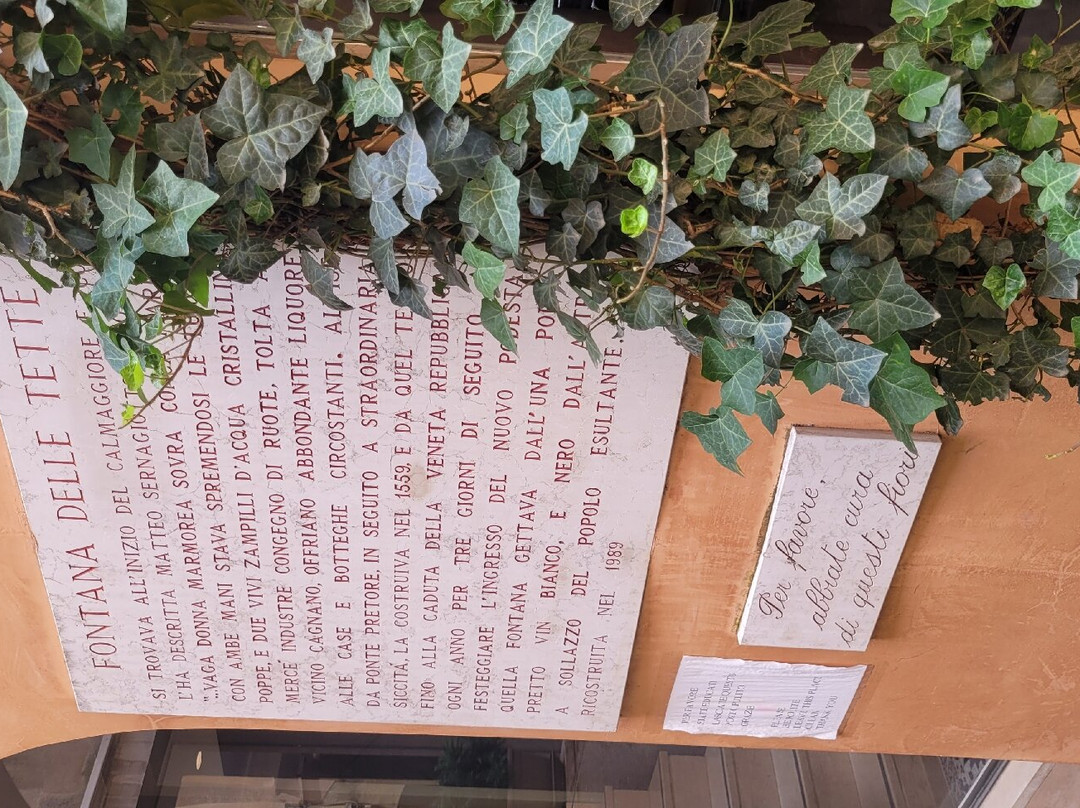 FONTANA DELLE TETTE
SI TROVAVA ALL'INIZIO DEL CALMAGGIORE E
L'HA DESCRITTA MATTEO SERNAGIO
"VAGA DONNA MARMOREA SOVRA LE
CON AMBE MANI STAVA SPREMENDOSI LE
POPPE, E DUE VIVI ZAMPILLI D'ACQUA CRISTALLIN
MERCÉ INDUSTRE CONGEGNO DI RUOTE, TOLTA
VICINO CAGNANO, OFFRIANO ABBONDANTE LIQUORE
ALLE CASE E BOTTEGHE CIRCOSTANTI. AL
DA PONTE PRETORE, IN SEGUITO A STRAORDINARIA
SICCITÀ, LA COSTRUIVA NEL 1559, E DA QUEL TE
FINO ALLA CADUTA DELLA VENETA REPUBBLIC
OGNI ANNO PER TRE GIORNI DI SEGUITO
FESTEGGIARE L'INGRESSO DEL NUOVO PODESTA
QUELLA FONTANA GETTAVA DALL'UNA POP
PRETTO VIN BIANCO, E NERO DALL'
A SOLLAZZO DEL POPOLO ESULTANTE
RICOSTRUITA NEL 1989
Per favore,
abbiate cura
di questi fiori
PER FAVORE
QUESTO
GRAZIE
THIS PLACE
CLEAN
THANK YOU